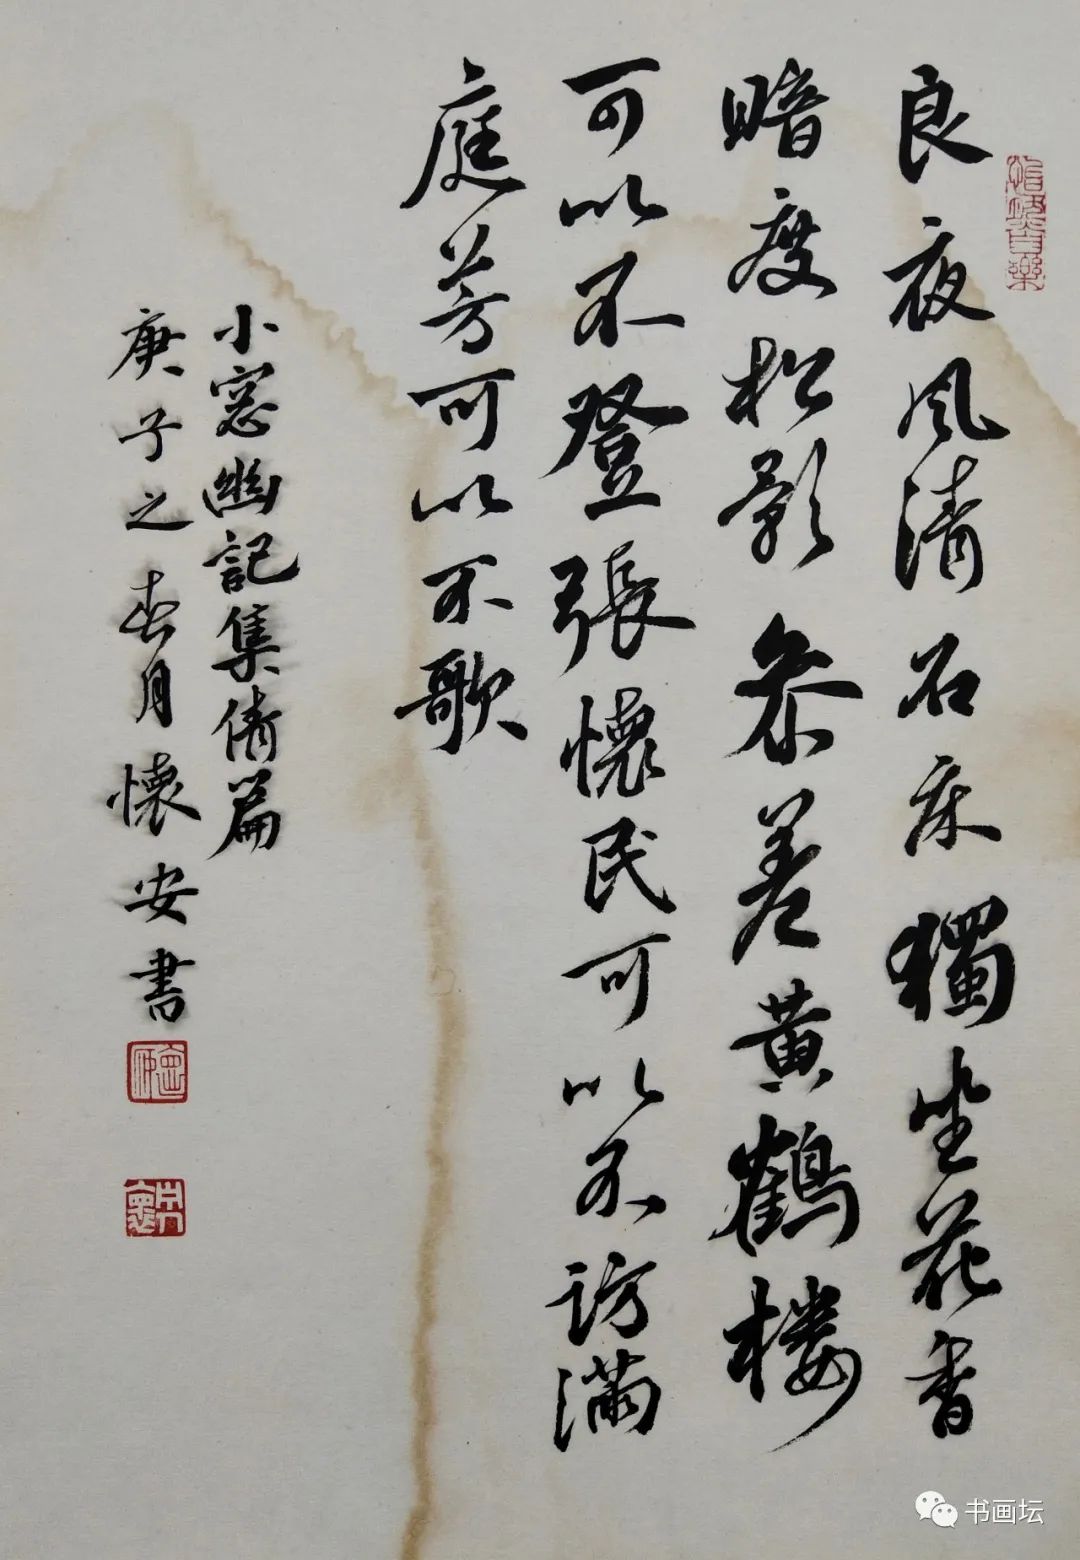 良夜风清石床獨坐花香
暗度松影参差黄鶴楼
可以不登張懷民可以不访满
庭芳可以不歌
小窓幽記集倩篇
庚子之春月懐安書
书画坛